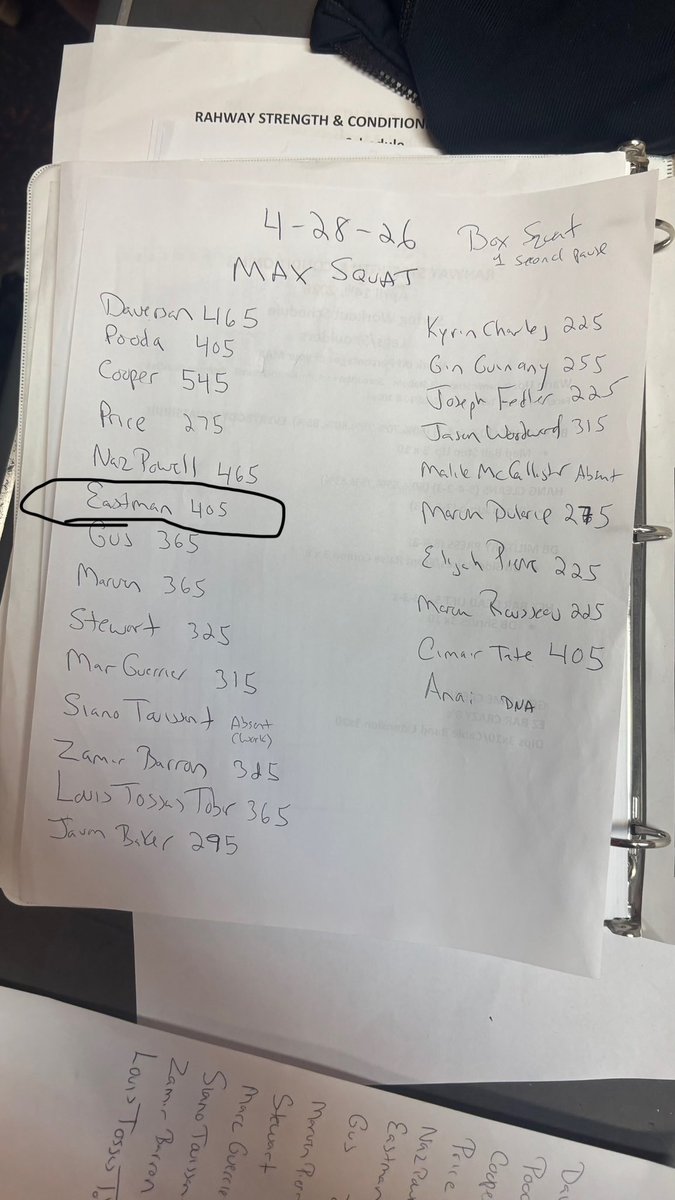 RAHWAY STRENGTH & CONDITION
4-28-26
Box Squat
1 second pause
MAX SQUAT
Daversan 465
Pooda 405
Cooper 545
Price 275
Naz Powell 465
Eastman 405
Gus 365
Marvon 365
Stewart 325
Mar Guerrier 315
Siano Absent
(work)
Zamir Barron 325
Louis Tossas 365
Baker 295
Kyrin Charles 225
Gin Guinany 255
Joseph Fedler 225
Jason Woodward 315
Malik McCallister Absent
275
Elijah 225
Rousseau 225
Cimair Tate 405
Anai DNA
Price
Naz
Eastman
Gus
Stewart
Marc Guerrie
Siano
Zamir Barron
Louis